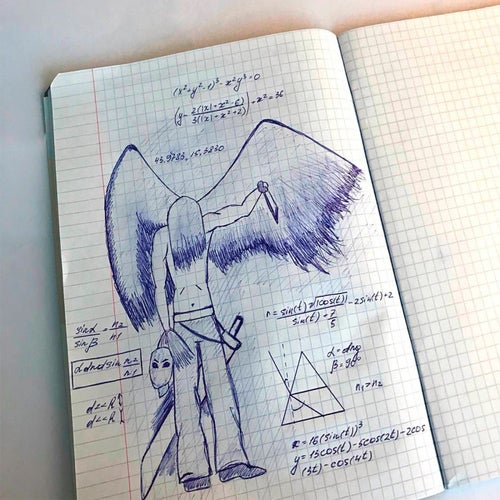 (x²+y²-1)³-x²y³=0
(y-2(|x|+x²-6)/3(|x|+x²+2))²+x²=36
43.9783,15.3830
r=sin(t)√|cos(t)|/sin(t)+7/5-2sin(t)+2
sinα/sinβ=n2/n1
n2/n1
β=90°
n1>n2
x=16(sin(t))³
y=13cos(t)-5cos(2t)-2cos
(3t)-cos(4t)